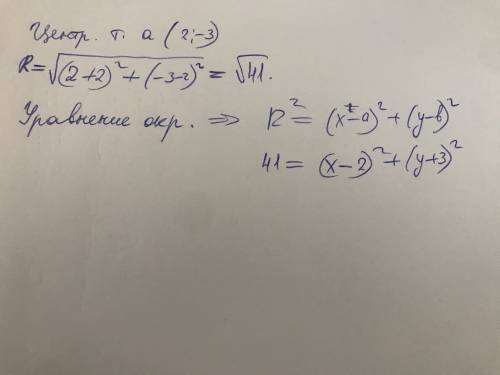 Центр. т. а (2;-3)
R=√(2+2)²+(-3-2)² = √41.
Уравнение окр. => R² = (x-a)²+(y-b)²
41 = (x-2)²+(y+3)²